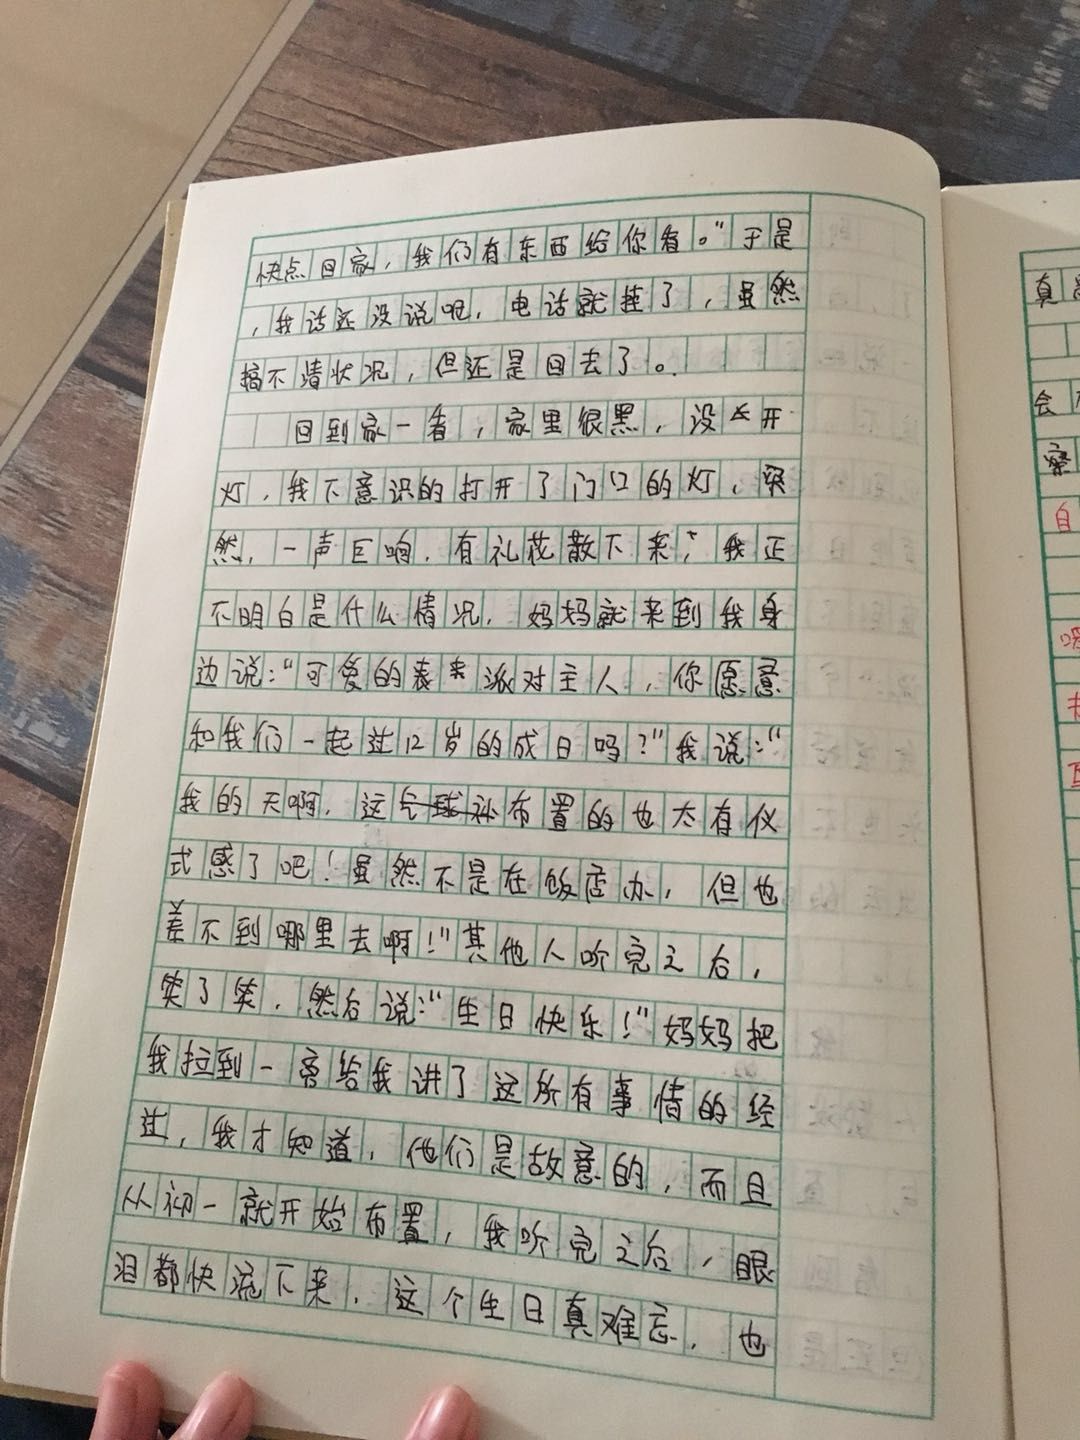 快点回家，我们有东西给你看。"于是
，我话还没说呢，电话就挂了，虽然
搞不清状况，但还是回去了。
回到家一看，家里很黑，没开
灯，我下意识的打开了门口的灯，突
然，一声巨响，有礼花散下来，我正
不明白是什么情况，妈妈就来到我身
边说："可爱的派对主人，你愿意
和我们一起过12岁的成日吗？"我说："
我的天啊，这布置的也太有仪
式感了吧！虽然不是在饭店办，但也
差不到哪里去啊！"其他人听完之后，
笑了笑，然后说："生日快乐！"妈妈把
我拉到一旁给我讲了这所有事情的经
过，我才知道，他们是故意的，而且
从初一就开始布置，我听完之后，眼
泪都快流下来，这个生日真难忘，也
真
会
察
自